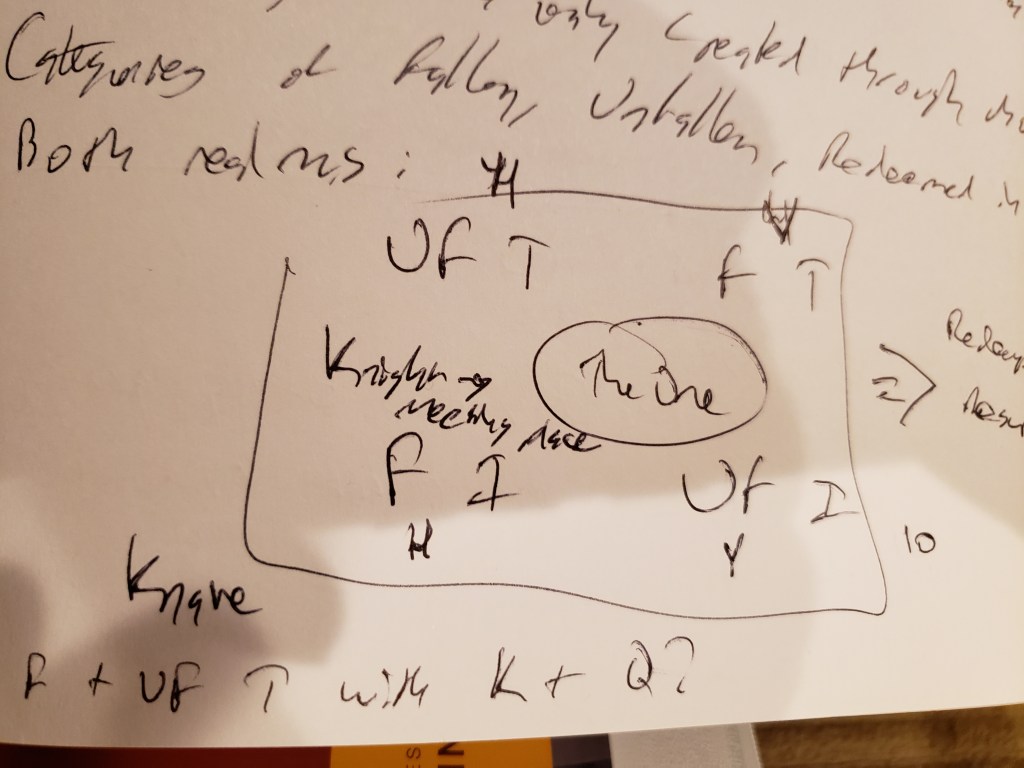 only created through
Categories of Fallen, Unfallen, Redeemed in
Both realms:
H
UF T F T
Knight → The One
meeting place
F I UF I
H Y 10
Knave
F + UF T with K + Q?